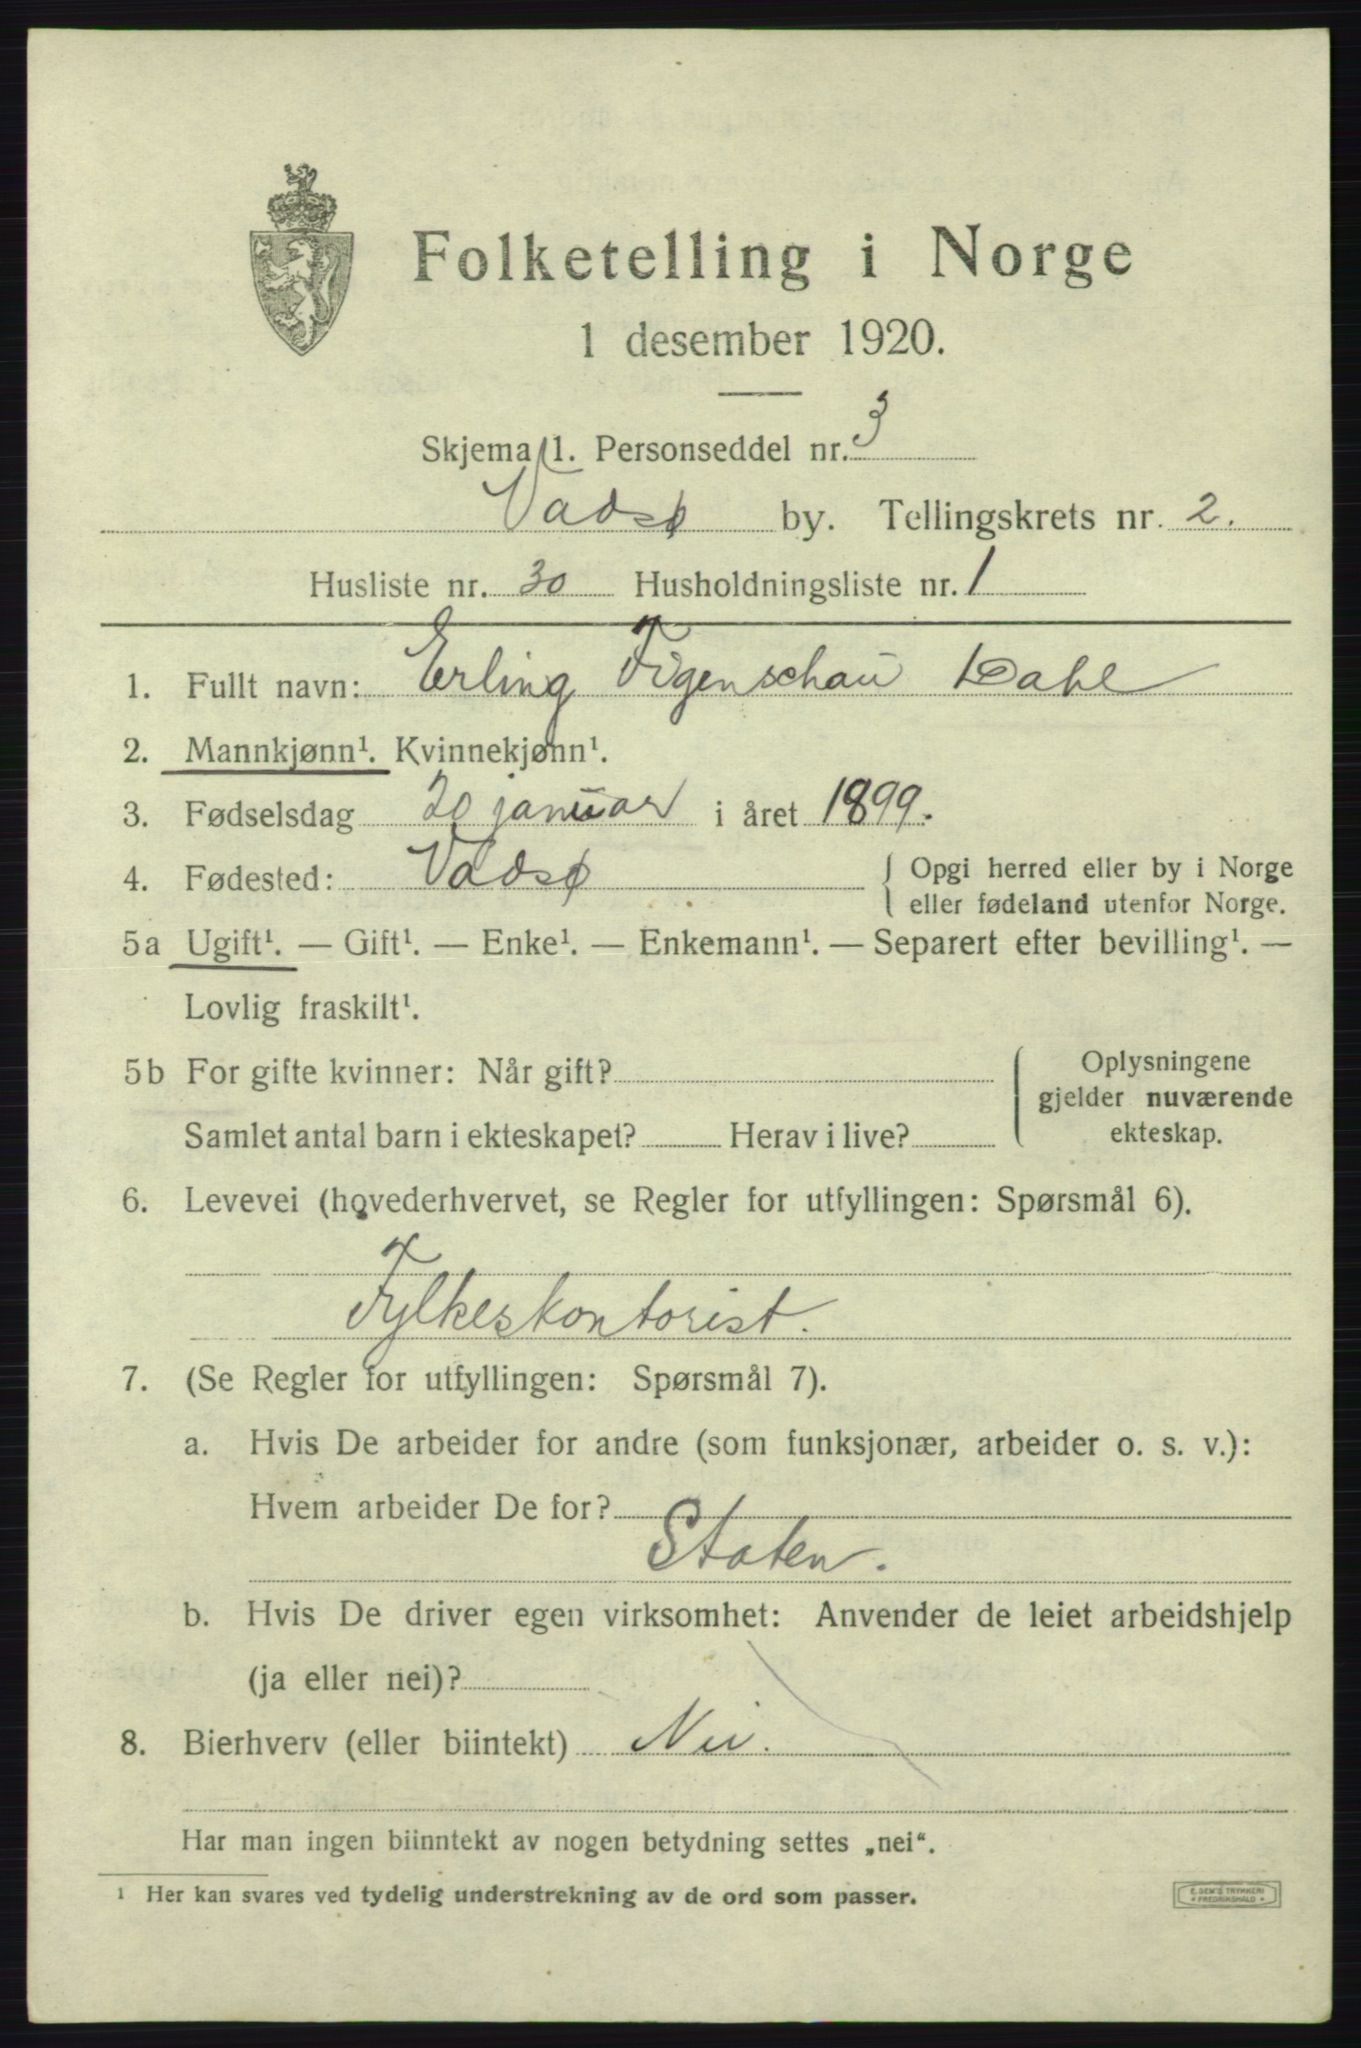 Folketelling i Norge
1 desember 1920.
Skjema 1. Personseddel nr. 3
Vadsø by. Tellingskrets nr. 2.
Husliste nr. 30 Husholdningsliste nr. 1
1. Fullt navn: Erling Figenschau Dahl
2. Mannkjønn¹. Kvinnekjønn¹.
3. Fødselsdag 20 januar i året 1899.
4. Fødested: Vadsø { Opgi herred eller by i Norge
eller fødeland utenfor Norge.
5a Ugift¹. — Gift¹. — Enke¹. — Enkemann¹. — Separert efter bevilling¹. —
Lovlig fraskilt¹.
5b For gifte kvinner: Når gift? { Oplysningene
gjelder nuværende
Samlet antal barn i ekteskapet? Herav i live? ekteskap.
6. Levevei (hovederhvervet, se Regler for utfyllingen: Spørsmål 6).
Fylkeskontorist.
7. (Se Regler for utfyllingen: Spørsmål 7).
a. Hvis De arbeider for andre (som funksjonær, arbeider o. s. v.):
Hvem arbeider De for?
Staten.
b. Hvis De driver egen virksomhet: Anvender de leiet arbeidshjelp
(ja eller nei)?
8. Bierhverv (eller biintekt) Nei.
Har man ingen biinntekt av nogen betydning settes „nei“.
¹ Her kan svares ved tydelig understrekning av de ord som passer.
E. SEM'S TRYKKERI
FREDRIKSHALD